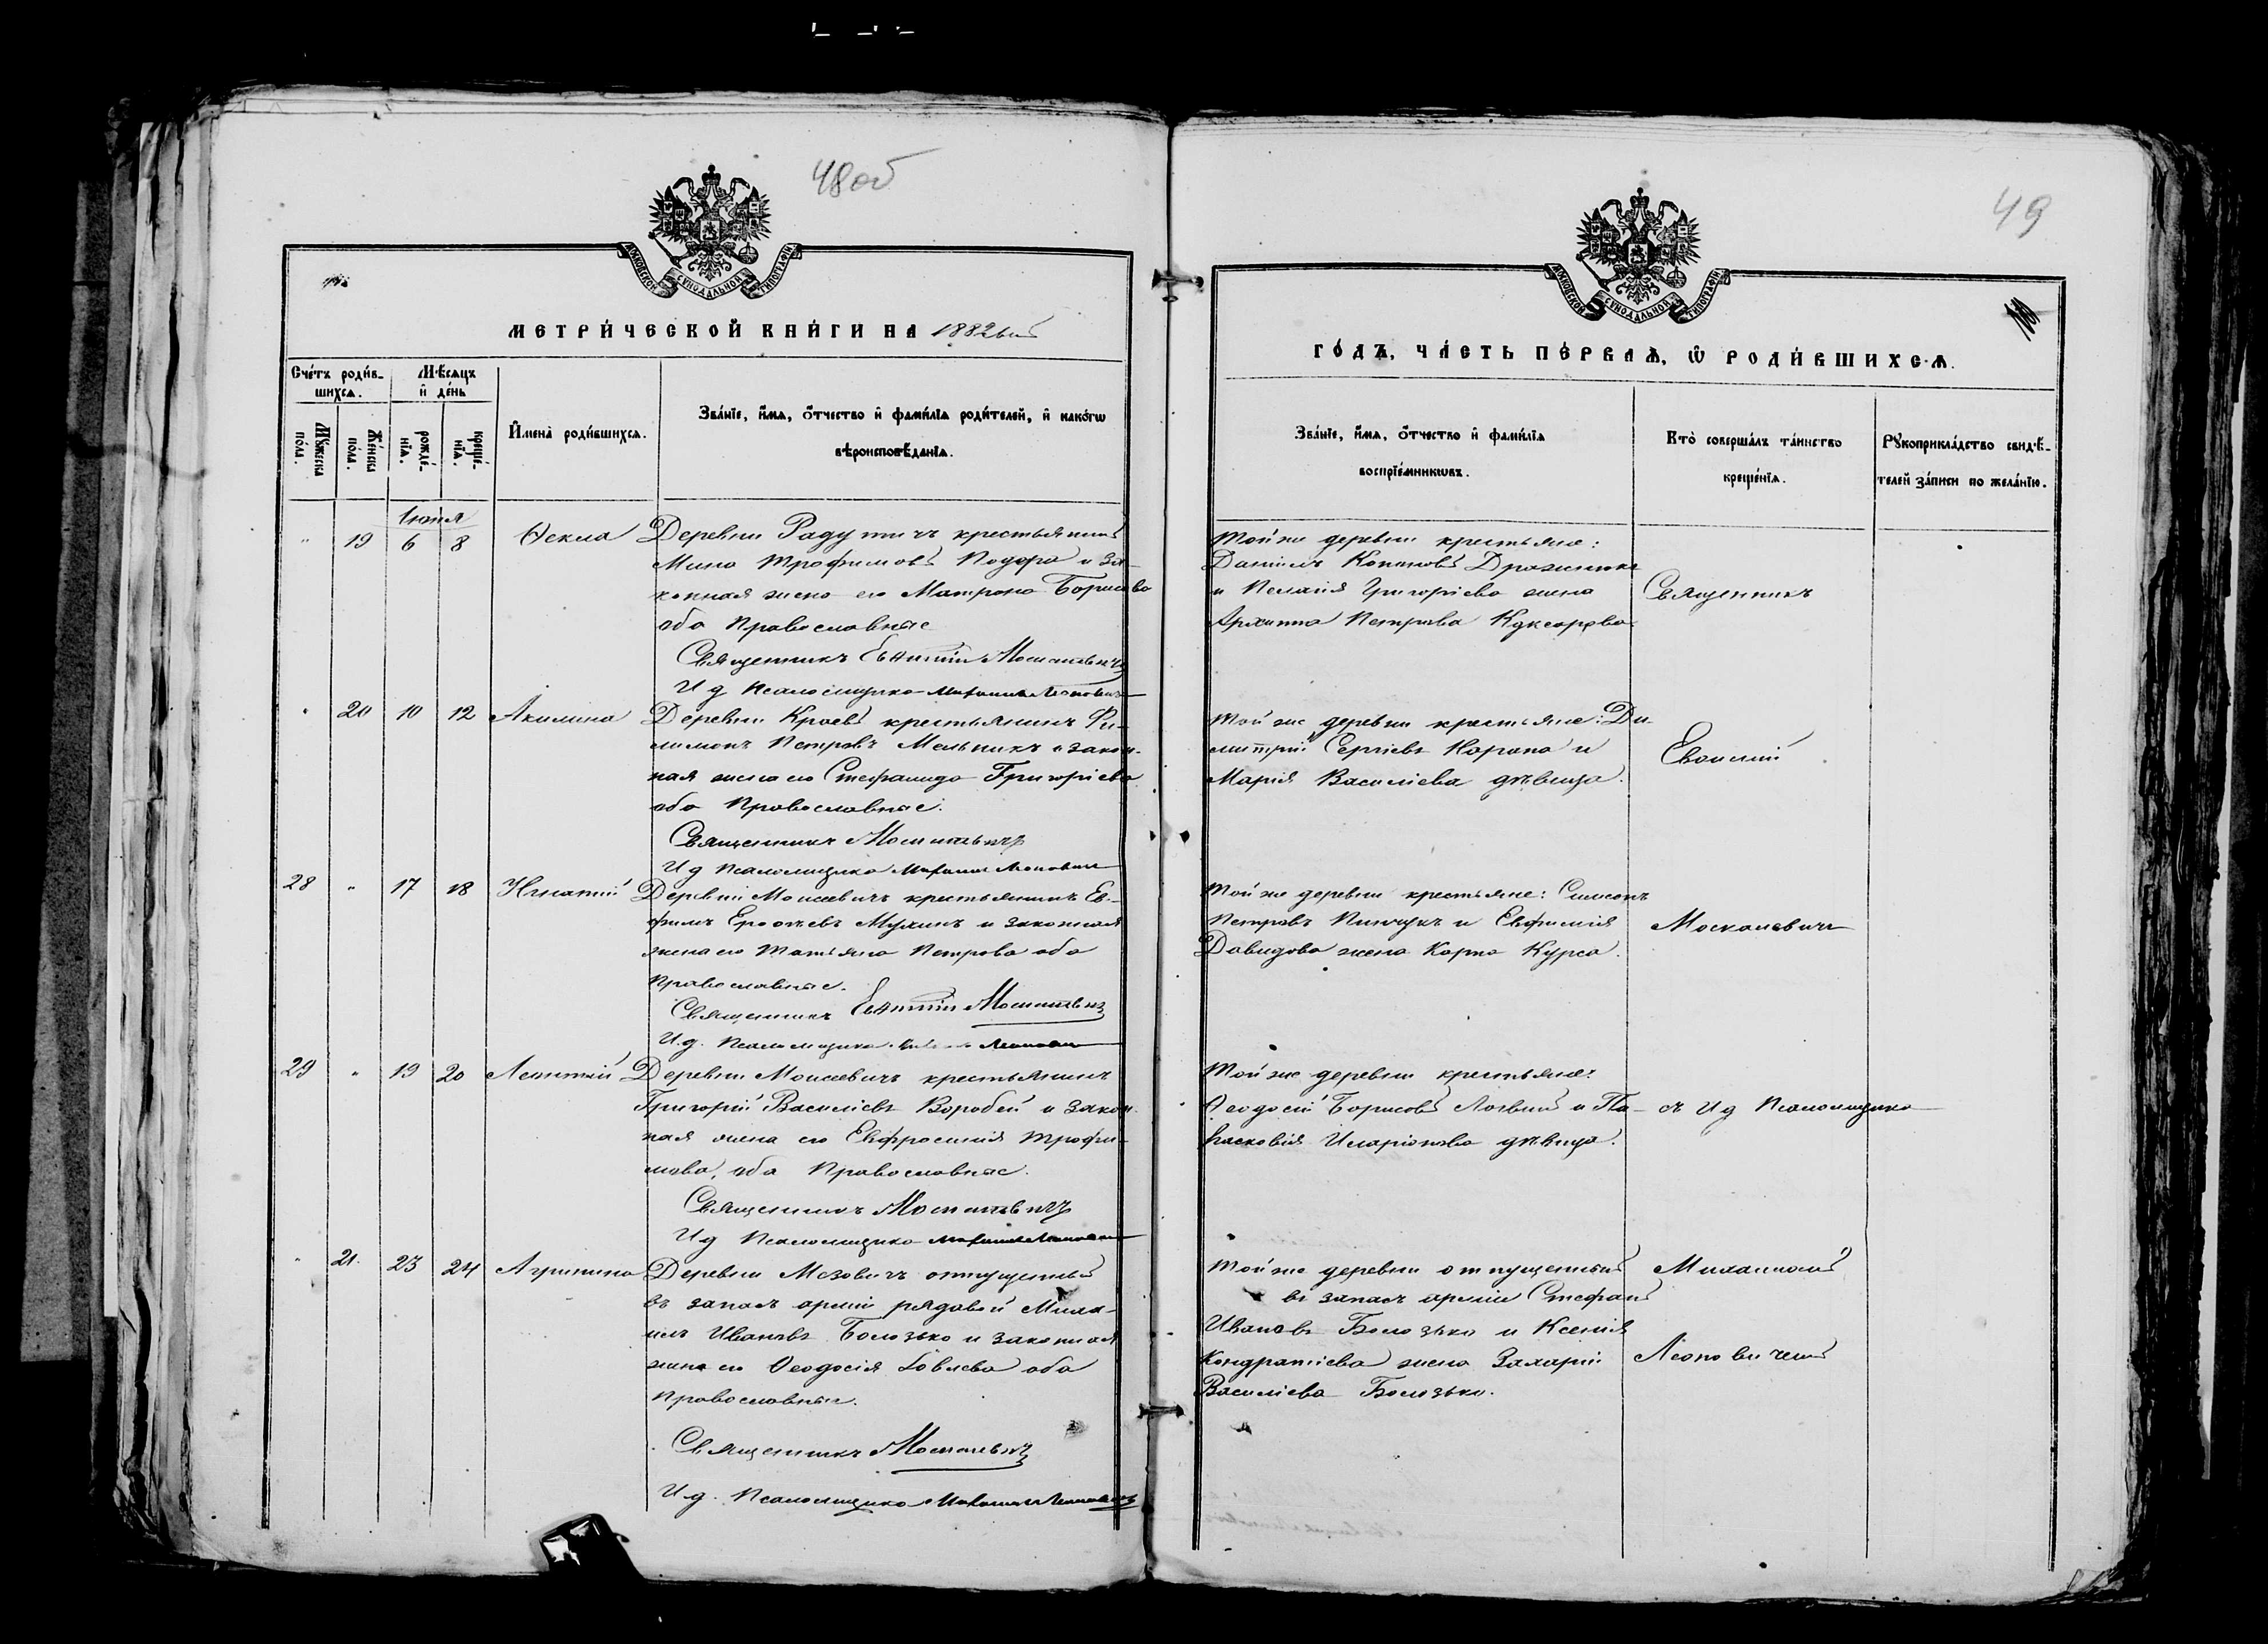 48об
МОСКОВСКОЙ СУНОДАЛЬНОЙ ТИПОГРАФІИ
МЕТРИ́ЧЕСКОЙ КНИ́ГИ НА 1882ый
Сче́тъ роди́в-
шихсѧ.
Мѣ́сѧцъ
и҆ де́нь
Мꙋ́жеска
по́ла.
Же́нска
по́ла.
рожде́-
нїѧ.
креще́-
нїѧ.
И҆мена̀ роди́вшихсѧ.
Зва́нїе, и҆́мѧ, ѻ҆́тчество и҆ фами́лїѧ роди́телей, и҆ како́гѡ
вѣроисповѣ́данїѧ.
Іюня
" 19 6 8 Ѳекла Деревни Радутичъ крестьянинъ
Мина Трофимовъ Подора и за-
конная жена его Матрона Борисова
оба Православные
Священникъ Евѳимій Москалевичъ
И д Псаломщика Михаилъ Леоновичъ
" 20 10 12 Акилина Деревни Краевъ крестьянинъ Фи-
лимонъ Петровъ Мельникъ и закон-
ная жена его Стефанида Григоріева
оба Православные.
Священникъ Москалевичъ
И д Псаломщика Михаилъ Леоновичъ
28 " 17 18 Игнатій Деревни Моисеевичъ крестьянинъ Ев-
фимъ Ерофеевъ Мухинъ и законная
жена его Татьяна Петрова оба
Православные.
Священникъ Евѳимій Москалевичъ
И.д. Псаломщика Леоновичъ
29 " 19 20 Леонтій Деревни Моисеевичъ крестьянинъ
Григорій Василіевъ Воробей и закон-
ная жена его Евфросинія Трофи-
мова, оба Православные.
Священникъ Москалевичъ
И д Псаломщика Михаилъ Леоновичъ
" 21. 23 24 Агрипина Деревни Мезовичъ отпущенный
въ запасъ арміи рядовой Миха-
илъ Ивановъ Болозько и законная
жена его Ѳеодосія оба
Православные.
Священникъ Москалевичъ
И.д. Псаломщика Михаилъ Леоновичъ
49
МОСКОВСКОЙ СУНОДАЛЬНОЙ ТИПОГРАФІИ
ГО́ДЪ, ЧА́СТЬ ПЕ́РВАѦ, Ѽ РОДИ́ВШИХСѦ.
Зва́нїе, и҆́мѧ, ѻ҆́тчество и҆ фами́лїѧ
воспрїе́мникѡвъ.
Кто̀ соверша́лъ та́инство
креще́нїѧ.
Рꙋкоприкла́дство свидѣ́-
телей за́писи по жела́нїю.
Той же деревни крестьяне:
Даніилъ Кононовъ
и Пелагія Григоріева жена
Архиппа Петрова
Священникъ
Той же деревни крестьяне: Ди-
митрій Сергіевъ Корана и
Марія Василіева дѣвица.
Евѳимій
Той же деревни крестьяне: Симеонъ
Петровъ Пинчукъ и Евфимія
Давидова жена Карпа Курса.
Москалевичъ
Той же деревни крестьяне:
Ѳеодосій Борисовъ Логвинъ и Па-
расковія Иларіонова дѣвица.
съ И д Псаломщика
Той же деревни отпущенный
въ запасъ арміи Стефанъ
Ивановъ Болозько и Ксенія
Кондратіева жена Захарія
Василіева Болозько.
Михаиломъ
Леоновичемъ